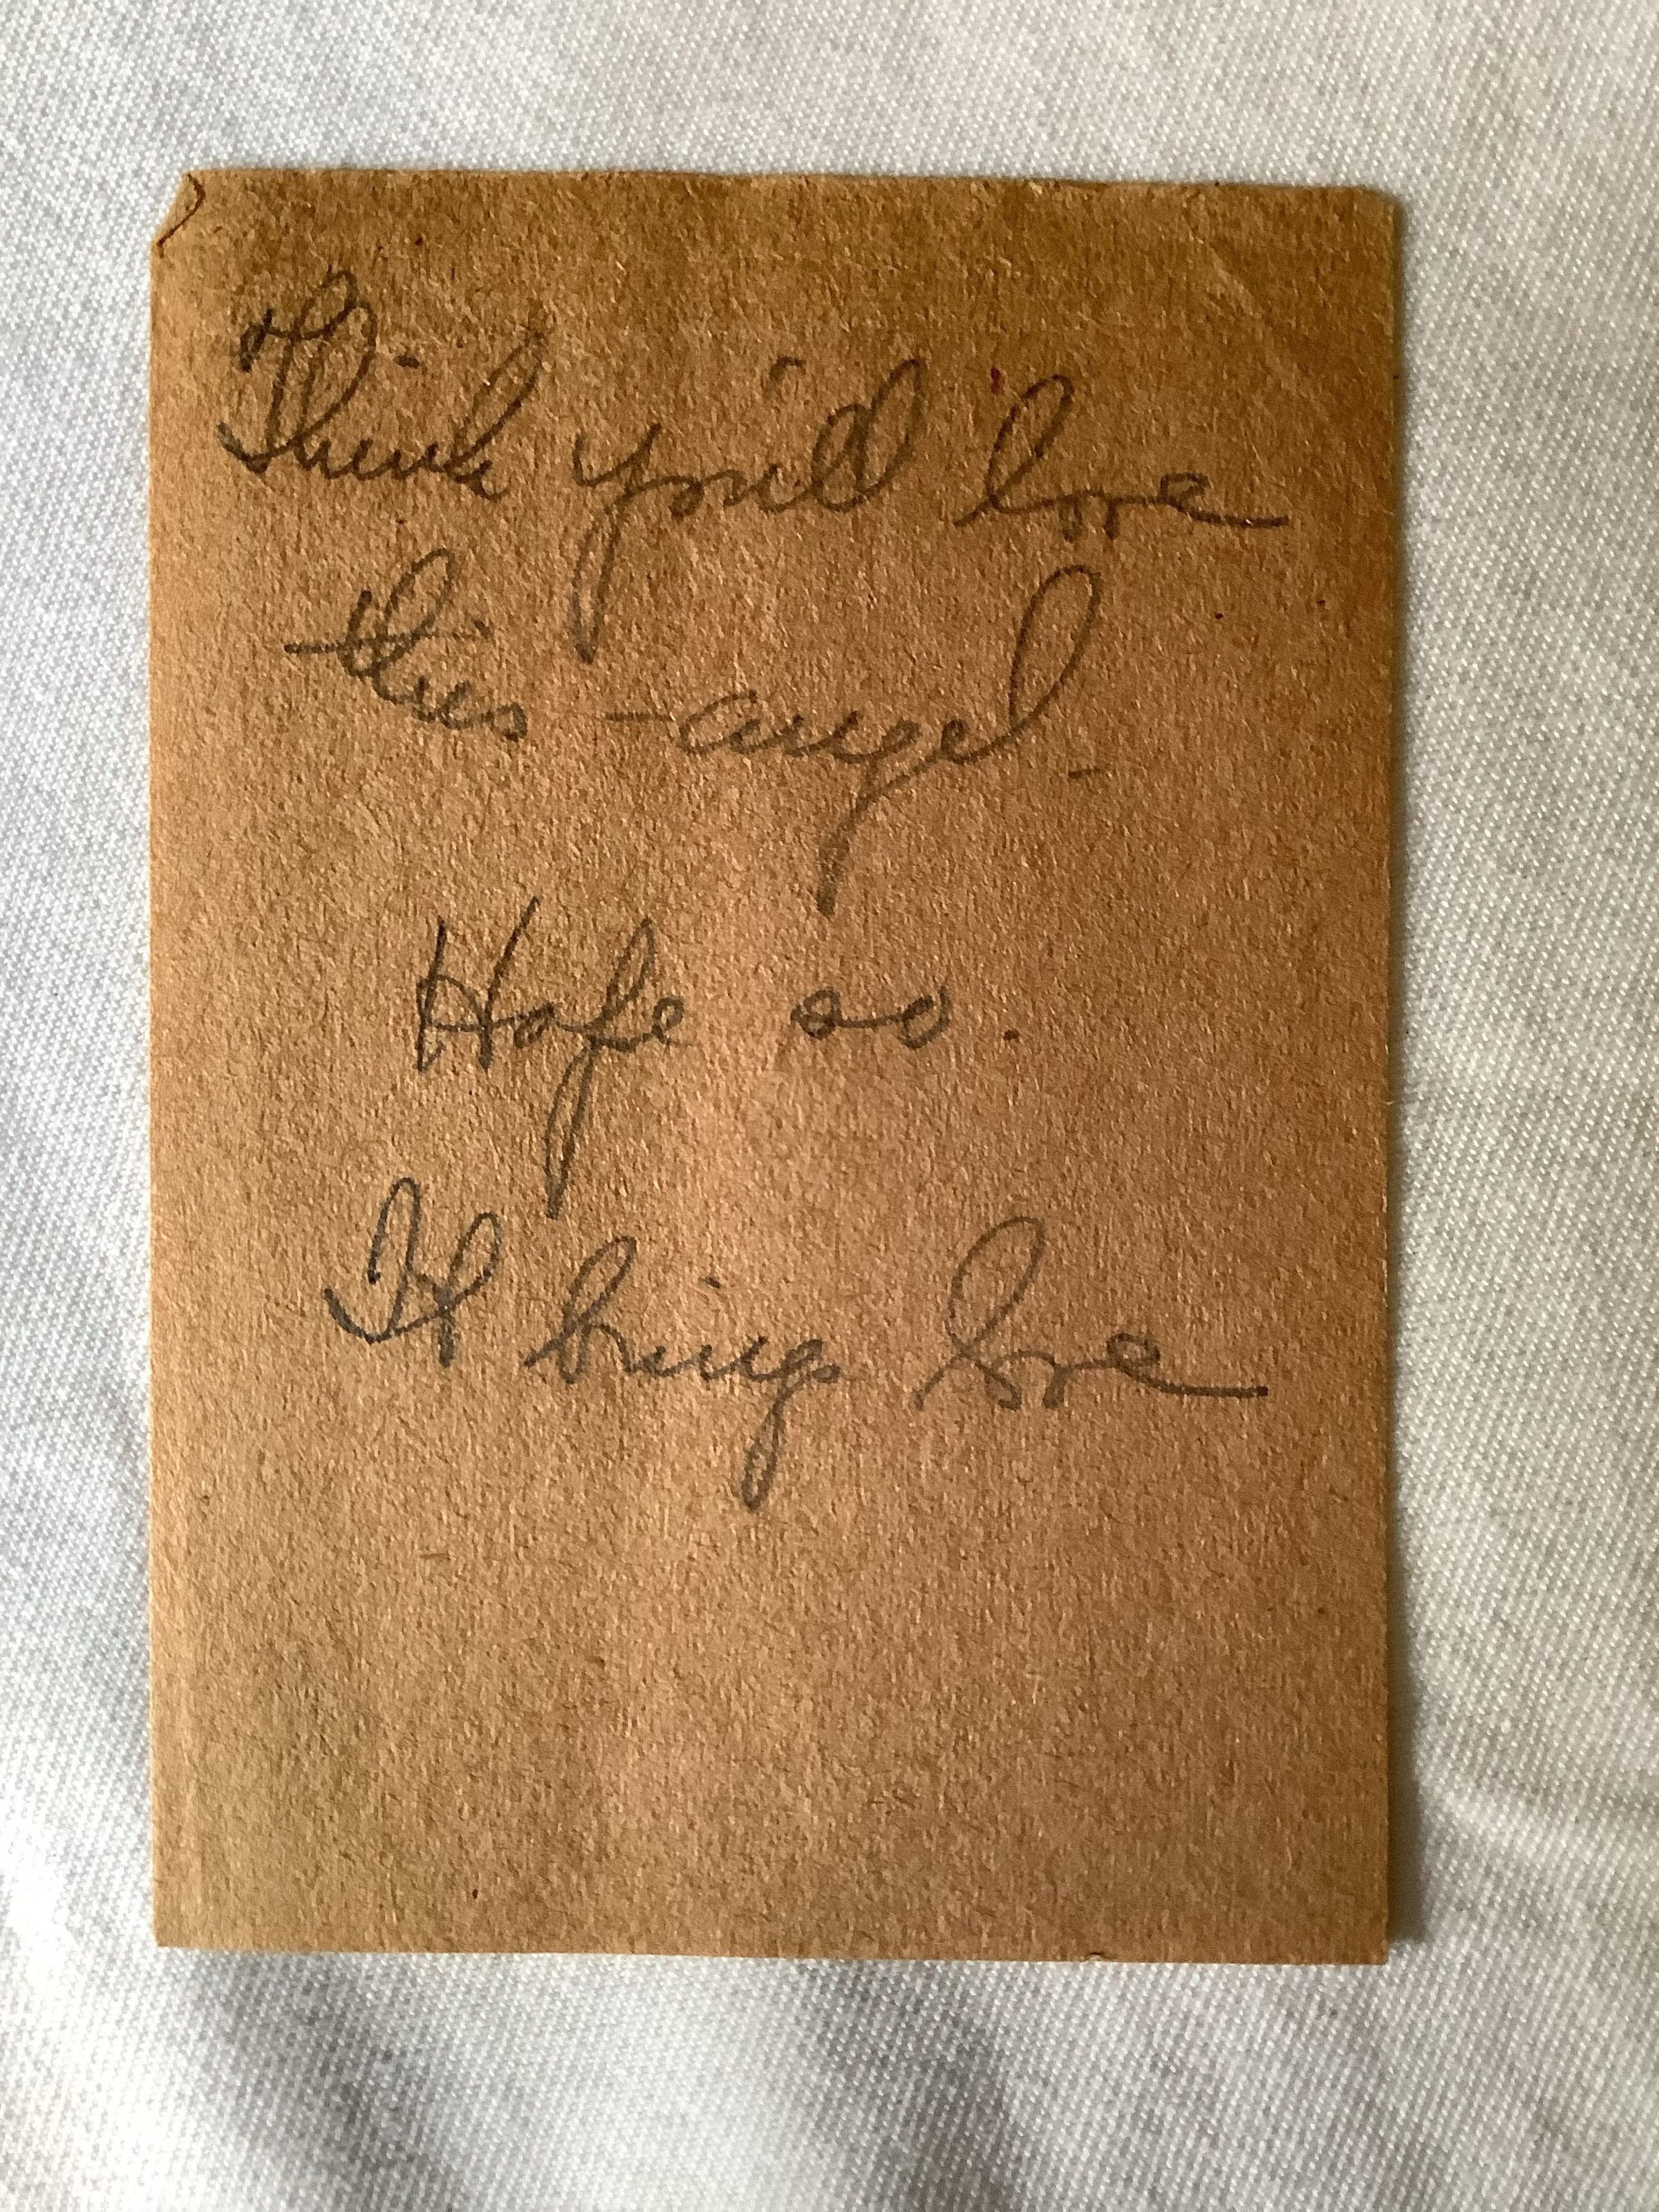 Think you'd love
this - angel.
Hope so.
It brings love